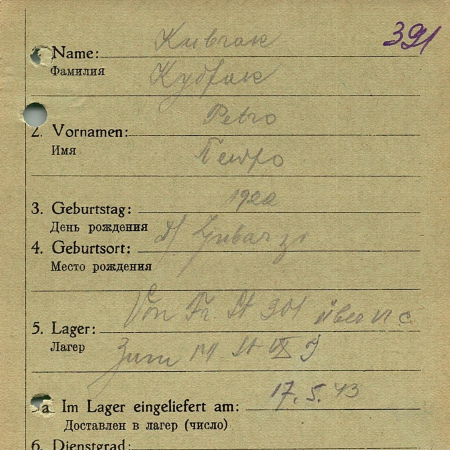 391
1. Name:
Фамилия
Кубрак
2. Vornamen: Petro
Имя Петро
3. Geburtstag: 1922
День рождения
4. Geburtsort:
Место рождения
Von Fr St 301 über VI C
5. Lager:
Лагер Zum M St IX
5a Im Lager eingeliefert am: 17.5.43
Доставлен в лагер (число)
6. Dienstgrad: